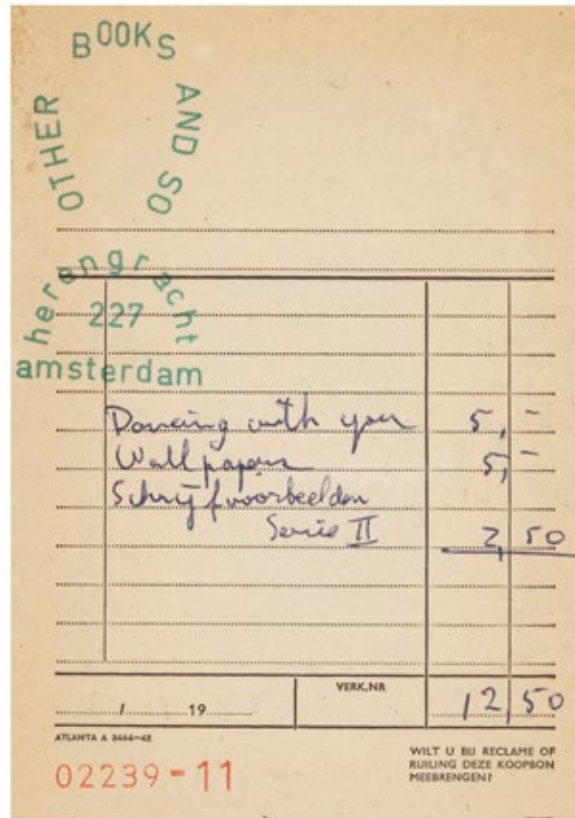 OTHER BOOKS AND SO
herengracht
227
amsterdam
Dancing with you 5,-
Wallpapers 5,-
Schrijfvoorbeelden
Serie II 2,50
/ 19
VERK.NR
12,50
ATLANTA A 3466-42
02239-11
WILT U BIJ RECLAME OF
RUILING DEZE KOOPBON
MEEBRENGEN?